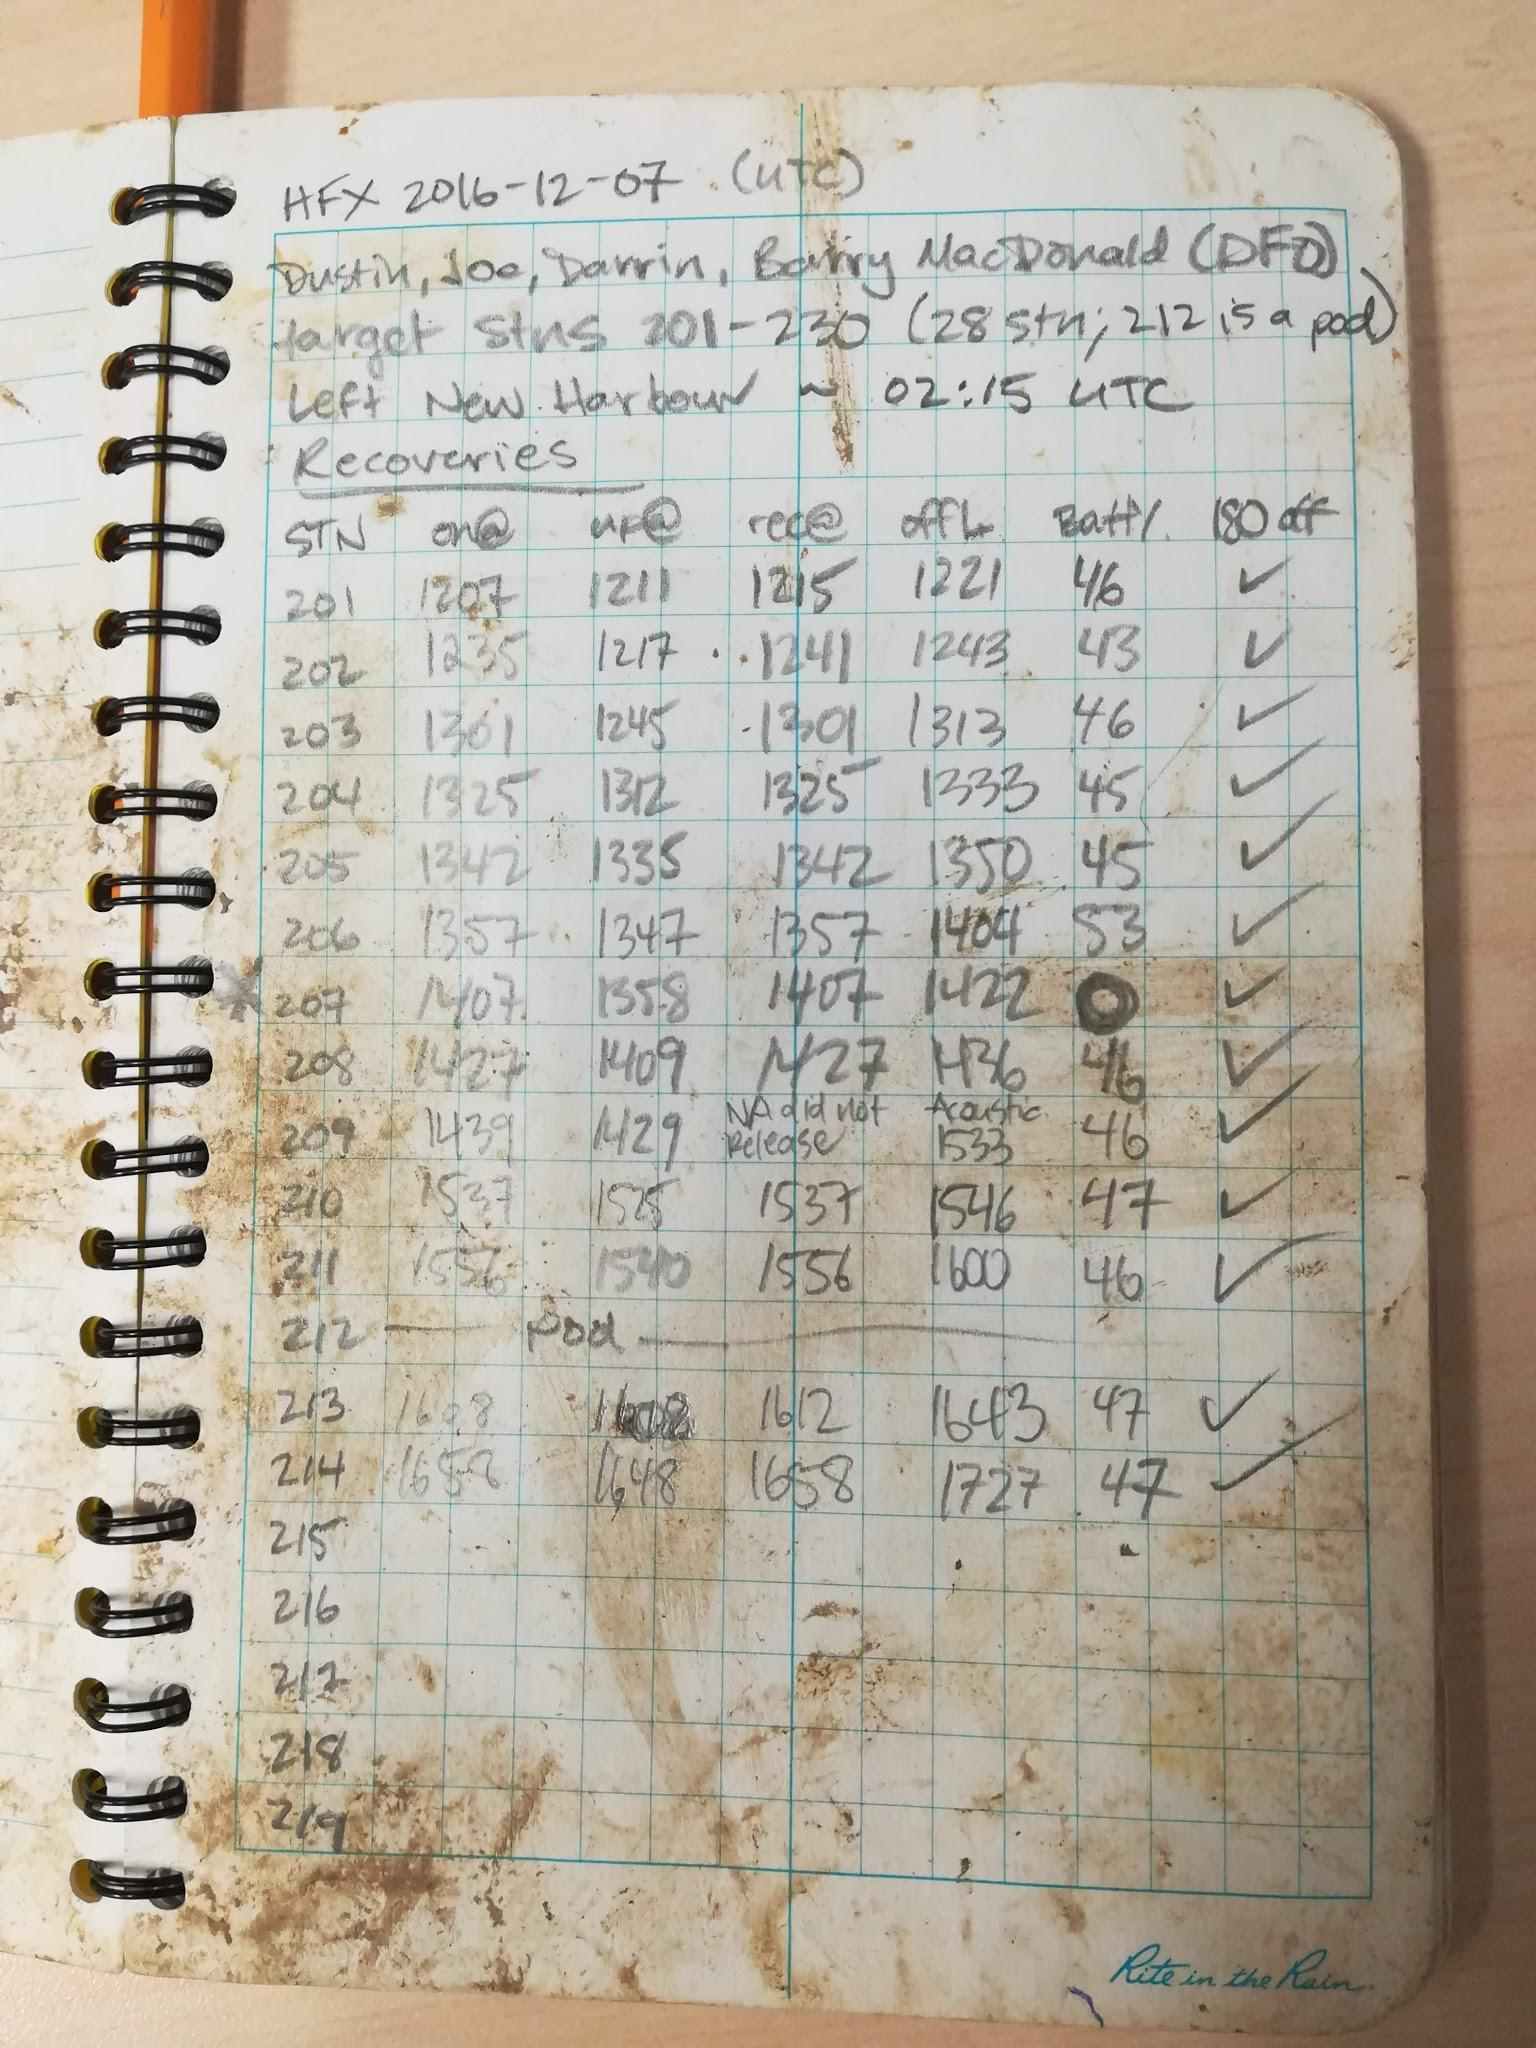 HFX 2016-12-07 (UTC)
Dustin, Joe, Darrin, Barry MacDonald (DFO)
target stns 201-230 (28 stn; 212 is a pod)
Left New Harbour ~ 02:15 UTC
Recoveries
STN on@ rec@ offL Batt% 180 off
201 1207 1211 1215 1221 46 ✓
202 1235 1217 1241 1243 43 ✓
203 1301 1245 1301 1313 46 ✓
204 1325 1312 1325 1333 45 ✓
205 1342 1335 1342 1350 45 ✓
206 1357 1347 1357 1404 53 ✓
* 207 1407 1358 1407 1422 0 ✓
208 1427 1409 1427 1436 46 ✓
209 1439 1429 NA did not Release Acoustic 1533 46 ✓
210 1537 1525 1537 1546 47 ✓
211 1556 1540 1556 1600 46 ✓
212 — Pod —
213 1608 1612 1643 47 ✓
214 1658 1648 1658 1727 47 ✓
215
216
217
218
219
Rite in the Rain